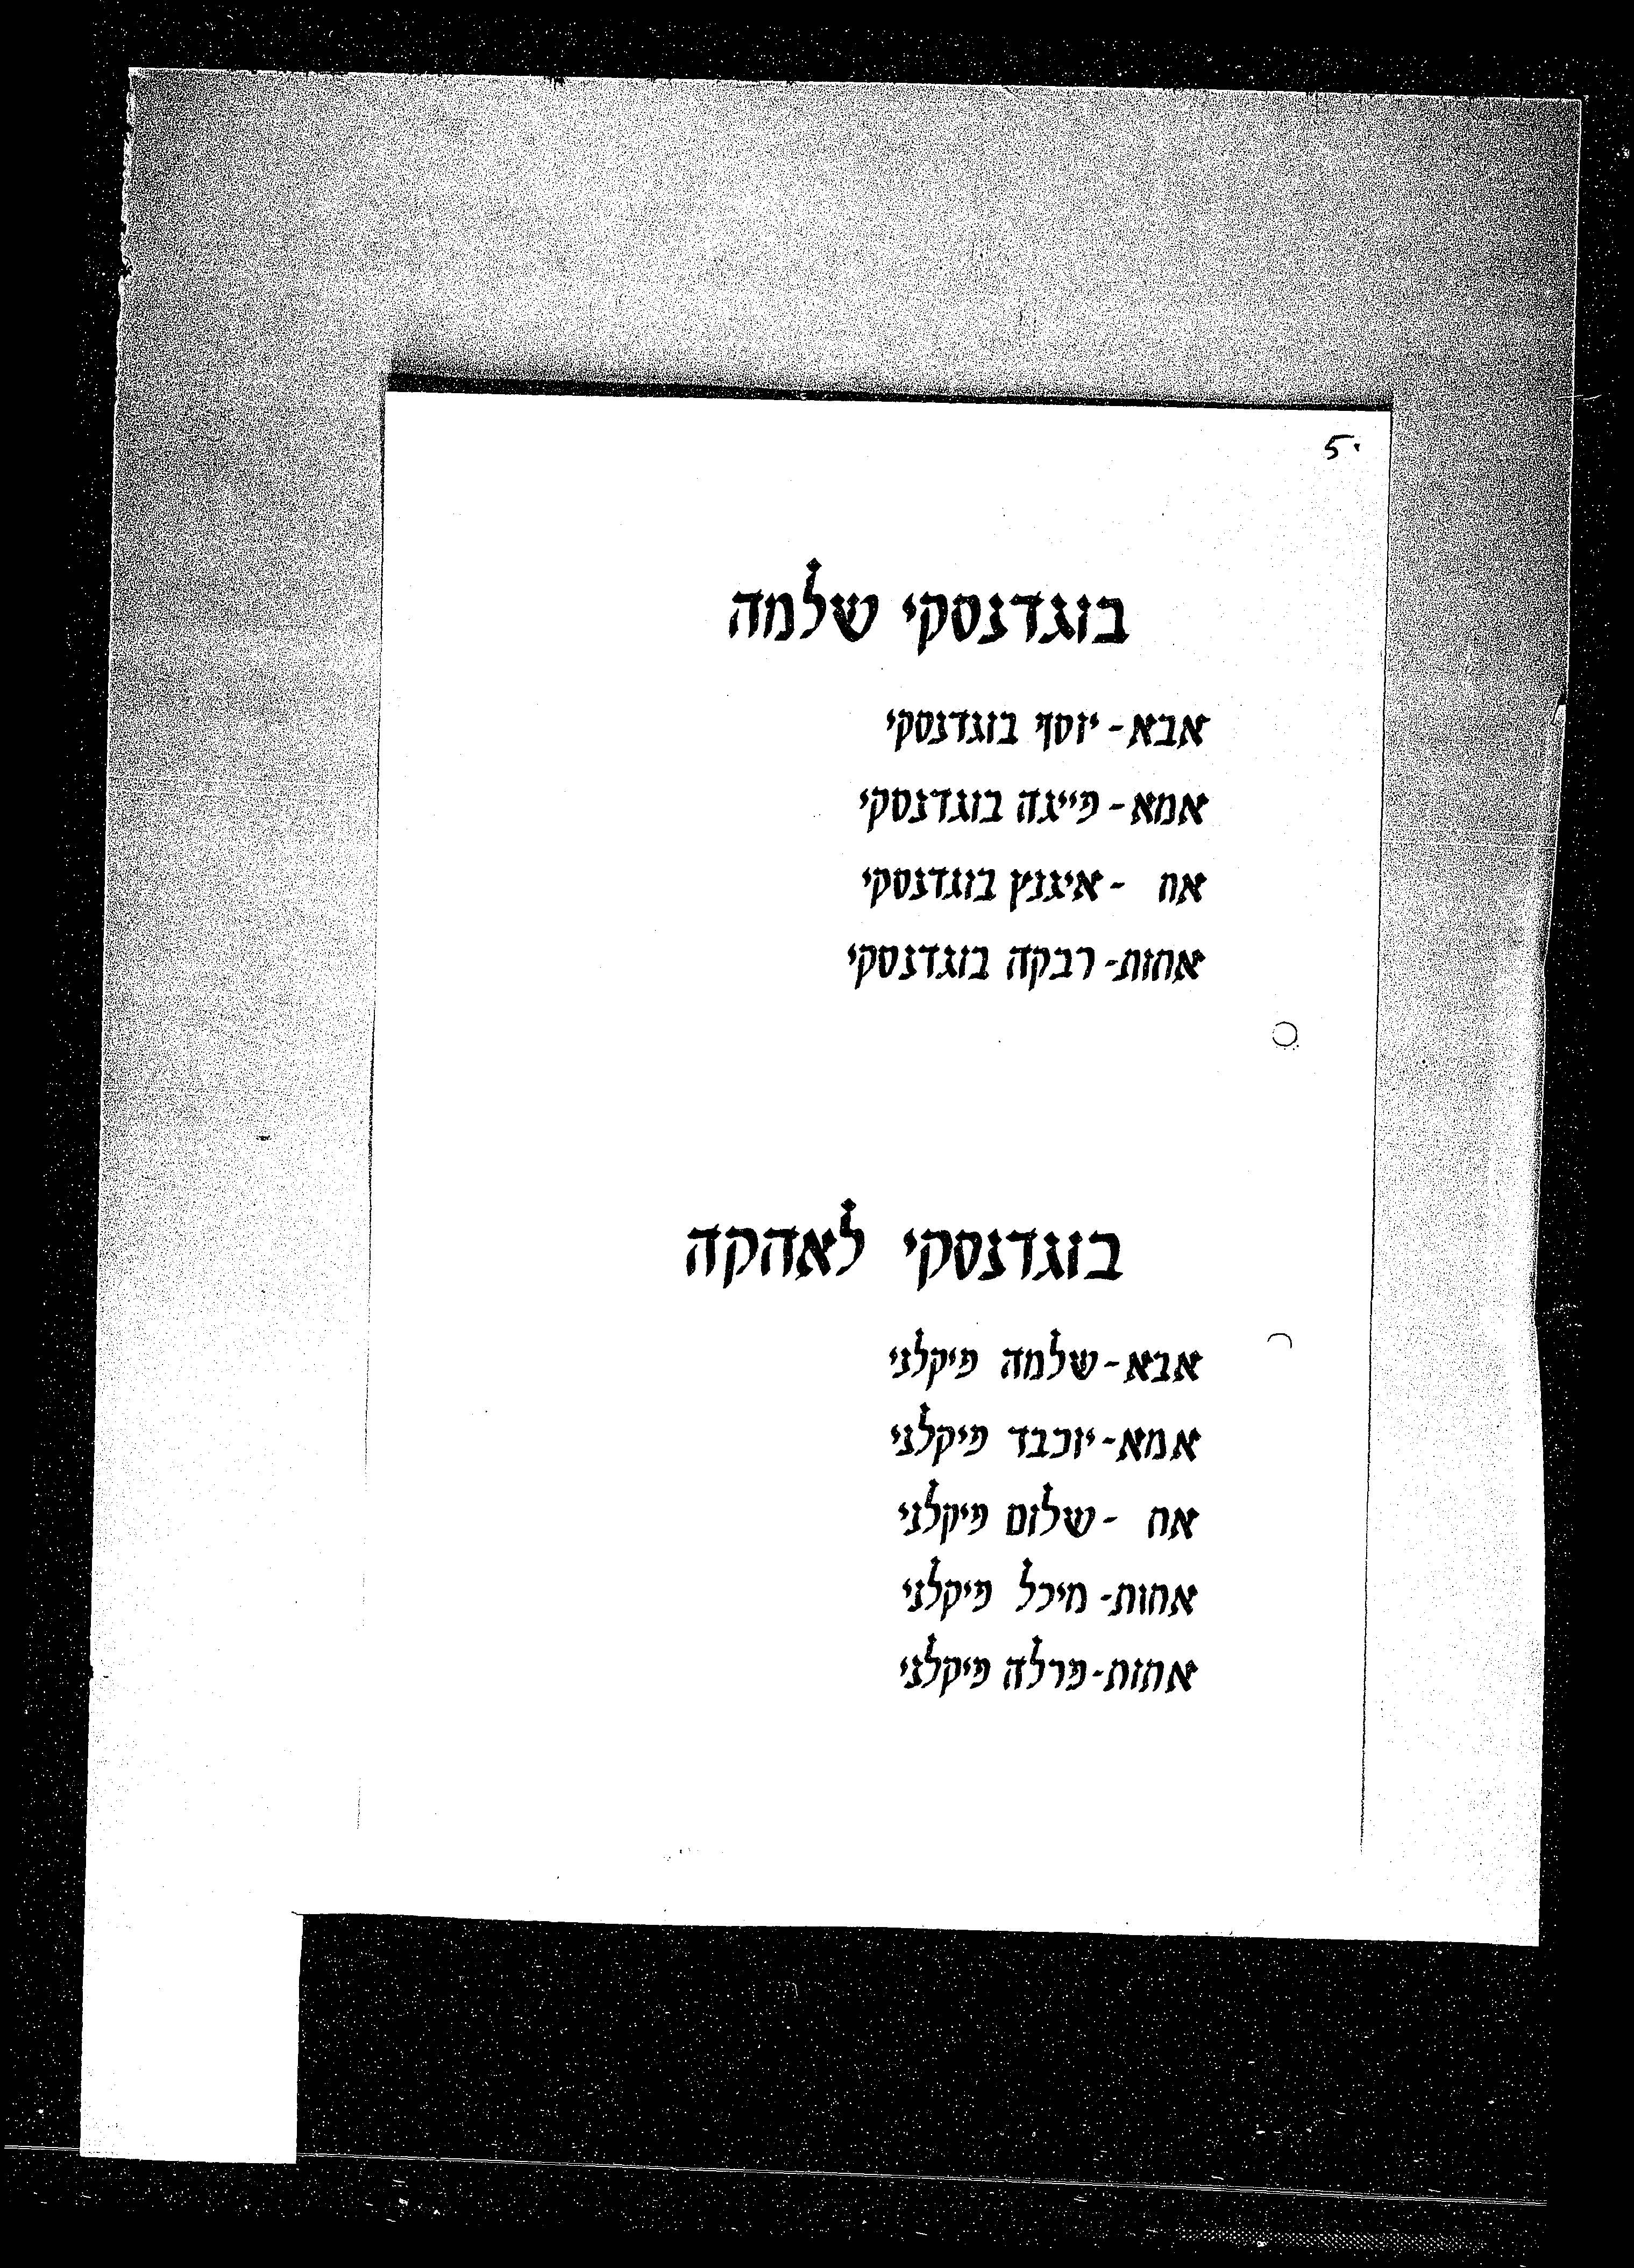 5.
בוגדנסקי שלמה
אבא - יוסף בוגדנסקי
אמא - פייגה בוגדנסקי
אח - איגנץ בוגדנסקי
אחות - רבקה בוגדנסקי
בוגדנסקי לאהקה
אבא - שלמה פיקלני
אמא - יוכבד פיקלני
אח - שלום פיקלני
אחות - מיכל פיקלני
אחות - פרלה פיקלני